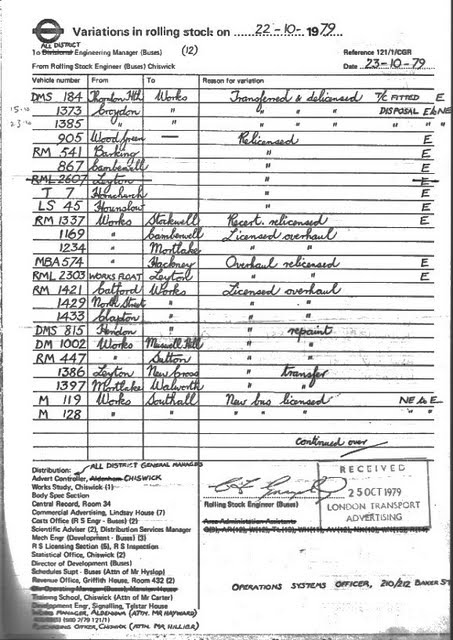 Variations in rolling stock on 22-10-1979
ALL DISTRICT
To Divisional Engineering Manager (Buses) (12)
Reference 121/1/CGR
From Rolling Stock Engineer (Buses) Chiswick
Date 23-10-79
Vehicle number From To Reason for variation
DMS 184 Thornton Hth Works Transferred & delicensed T/C FITTED E
15-10 1373 Croydon " " " " DISPOSAL E&NE
23-10 1385 " " " " " " " "
905 Wood Green — Relicensed E
RM 541 Barking " E
867 Camberwell " E
RML 2607 Leyton " E
T 7 Hornchurch " E
LS 45 Hounslow " E
RM 1337 Works Stockwell Recert. relicensed E
1169 " Camberwell Licensed overhaul
1234 " Mortlake " "
MBA 574 " Hackney Overhaul relicensed E
RML 2303 WORKS FLOAT Leyton " " E
RM 1421 Catford Works Licensed overhaul
1429 North Street " " "
1433 Clapton " " "
DMS 815 Hendon " " repaint
DM 1002 Works Muswell Hill " "
RM 447 " Sutton " "
1386 Leyton New Cross " transfer
1397 Mortlake Walworth " "
M 119 Works Southall New bus licensed NE & E
M 128 " " " " " " "
continued over
Distribution:
ALL DISTRICT GENERAL MANAGERS
Advert Controller, Aldenham CHISWICK
Works Study, Chiswick (1)
Body Spec Section
Central Record, Room 34
Commercial Advertising, Lindsay House (7)
Costs Office (R S Engr - Buses) (2)
Scientific Adviser (2), Distribution Services Manager
Mech Engr (Development - Buses) (3)
R S Licensing Section (5), R S Inspection
Statistical Office, Chiswick (2)
Director of Development (Buses)
Schedules Supt - Buses (Attn of Mr Hyslop)
Revenue Office, Griffith House, Room 432 (2)
Training School, Chiswick (Attn of Mr Carter)
Development Engr, Signalling, Telstar House
WORKS MANAGER, ALDENHAM (ATTN MR HAYWARD)
PURCHASING OFFICER, CHISWICK (ATTN. MR HILLIER)
Rolling Stock Engineer (Buses)
Area Administration Assistants
RECEIVED
25 OCT 1979
LONDON TRANSPORT
ADVERTISING
OPERATIONS SYSTEMS OFFICER, 210/212 BAKER ST